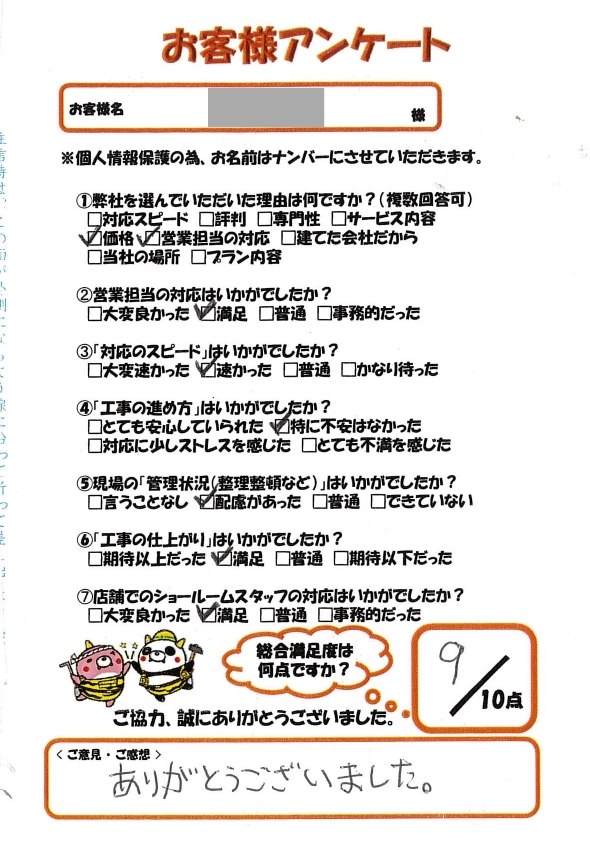 お客様アンケート
お客様名 様
※個人情報保護の為、お名前はナンバーにさせていただきます。
①弊社を選んでいただいた理由は何ですか？(複数回答可)
□対応スピード □評判 □専門性 □サービス内容
☑価格 ☑営業担当の対応 □建てた会社だから
□当社の場所 □プラン内容
②営業担当の対応はいかがでしたか？
□大変良かった ☑満足 □普通 □事務的だった
③｢対応のスピード｣はいかがでしたか？
□大変速かった ☑速かった □普通 □かなり待った
④｢工事の進め方｣はいかがでしたか？
□とても安心していられた ☑特に不安はなかった
□対応に少しストレスを感じた □とても不満を感じた
⑤現場の｢管理状況(整理整頓など)｣はいかがでしたか？
□言うことなし ☑配慮があった □普通 □できていない
⑥｢工事の仕上がり｣はいかがでしたか？
□期待以上だった ☑満足 □普通 □期待以下だった
⑦店舗でのショールームスタッフの対応はいかがでしたか？
□大変良かった ☑満足 □普通 □事務的だった
総合満足度は
何点ですか？
9/10点
ご協力、誠にありがとうございました。
< ご意見・ご感想 >
ありがとうございました。